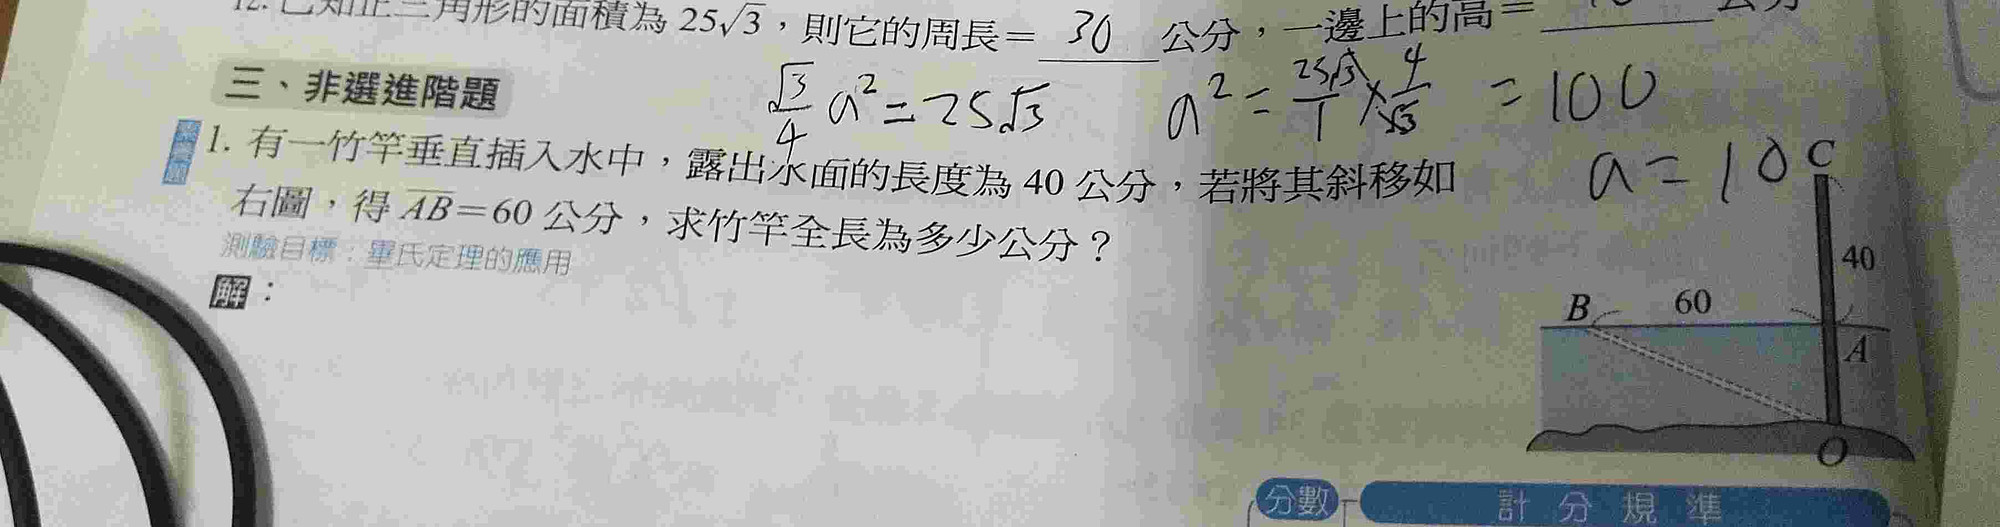 12. 已知正三角形的面積為 25√3，則它的周長＝ 30 公分，一邊上的高＝
三、非選進階題
√3/4 a²=25√3 a²= 25√3/1 × 4/√3 = 100
a=10
1. 有一竹竿垂直插入水中，露出水面的長度為 40 公分，若將其斜移如
右圖，得 AB＝60 公分，求竹竿全長為多少公分？
測驗目標：畢氏定理的應用
解：
C
40
B 60
A
O
分數 計分規準